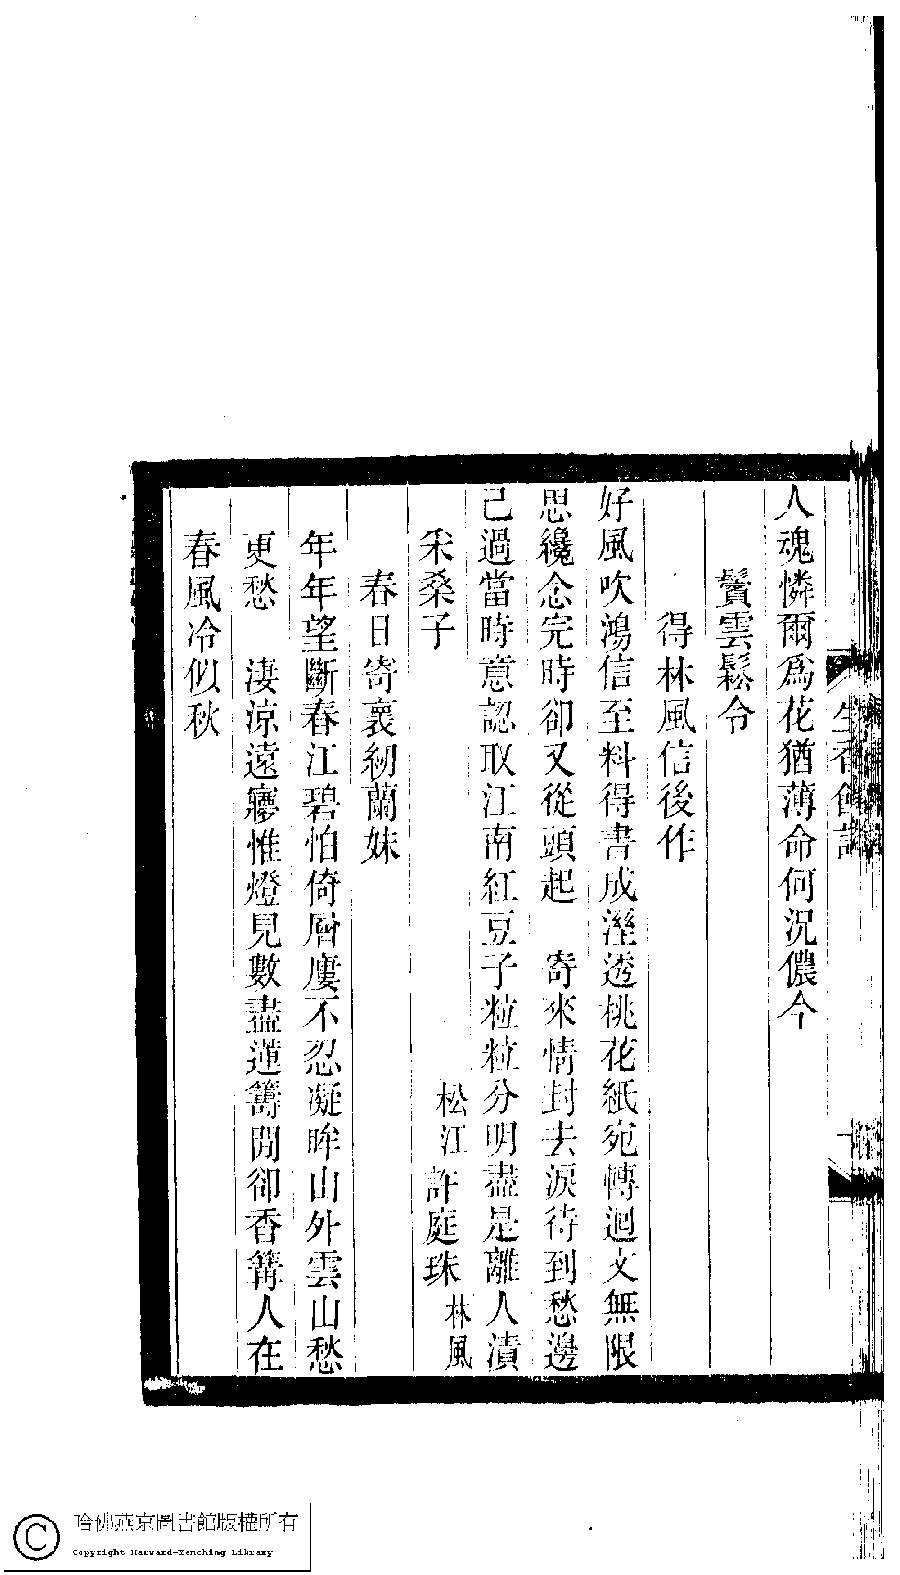 生香館詞
人魂憐爾爲花猶薄命何況儂今
鬢雲鬆令
得林風信後作
好風吹鴻信至料得書成溼透桃花紙宛轉迴文無限
思纔念完時卻又從頭起　寄來情封去淚待到愁邊
已過當時意認取江南紅豆子粒粒分明盡是離人漬
釆桑子　松江許庭珠林風
春日寄襄紉蘭妹
年年望斷春江碧怕倚層廔不忍凝眸山外雲山愁
更愁　淒涼遠㝱惟燈見數盡蓮籌閒卻香篝人在
春風冷似秋
哈佛燕京圖書館版權所有
Copyright Harvard-Yenching Library